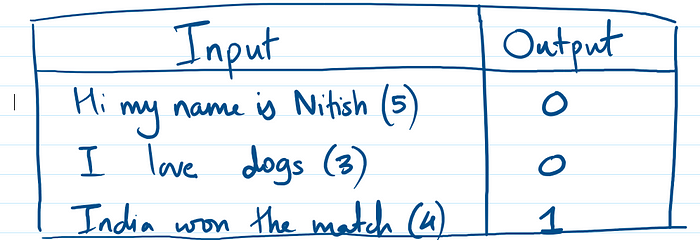 Input Output
Hi my name is Nitish (5) 0
I love dogs (3) 0
India won the match (4) 1